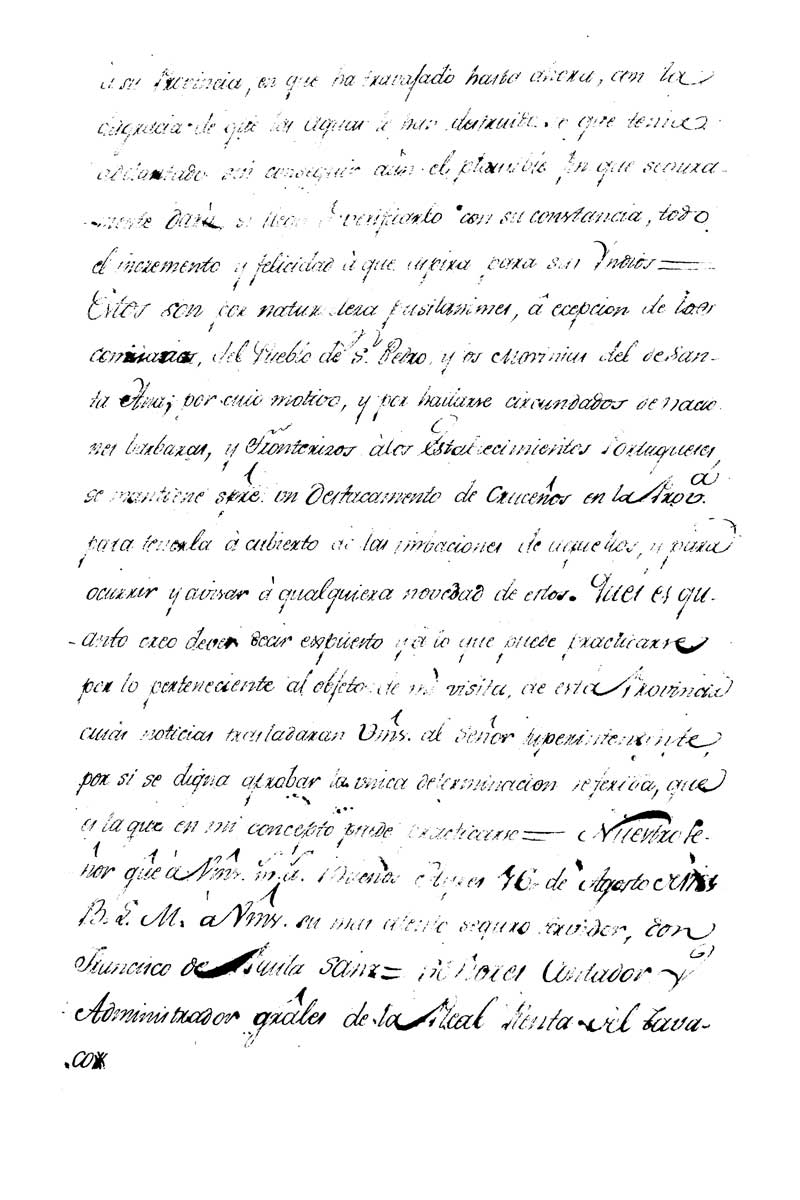 á su Provincia, en que ha travajado hasta ahora, con la
desgracia de que las aguas le han destruido lo que tenia
adelantado sin conseguir aún el plausible fin que segura-
-mente dará, si llega á verificarlo con su constancia, todo
el incremento y felicidad á que aspira para sus Yndios=
Estos son por naturaleza pusilanimes, á ecepcion de los
del Pueblo de Sn. Pedro, y los Movimas del de San-
ta Ana; por cuio motivo, y por hallarse circundados de nacio
nes barbaras, y Fronterizos álos Establecimientos Portugueses,
se mantiene spre. un Destacamento de Cruceños en la Prova.
para tenerla á cubierto de las imbaciones de aquellos, y para
ocurrir y avisar á qualquiera novedad de estos. Que es qu-
-anto creo dever decir expuesto ya lo que puede practicarse
por lo perteneciente al objeto de mi visita, de esta Provincia
cuias noticias trasladaran Vms. al Señor Superintendente,
por si se digna aprobar la unica determinacion referida, que
es la que en mi concepto puede practicarse= Nuestro Se-
ñor gûe á Vms. m. a. Buenos Ayres 16 de Agosto
B. L. M. á Vms. su mas atento seguro servidor, Don
Francisco de Paula Sanz= Señores Contador y
Administrador grâles de la Real Renta del Tava-
.co